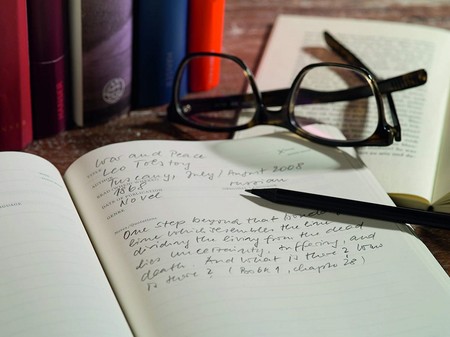 War and Peace
Leo Tolstoy
Tuscany, July/August 2008
1868
russian
DATE OF PUBLICATION
Novel
GENRE
One step beyond that
line which resembles the line
dividing the living from the dead
lies uncertainty, suffering, and
death. And what is there? Who
is there? (Book 1, chapter 28)